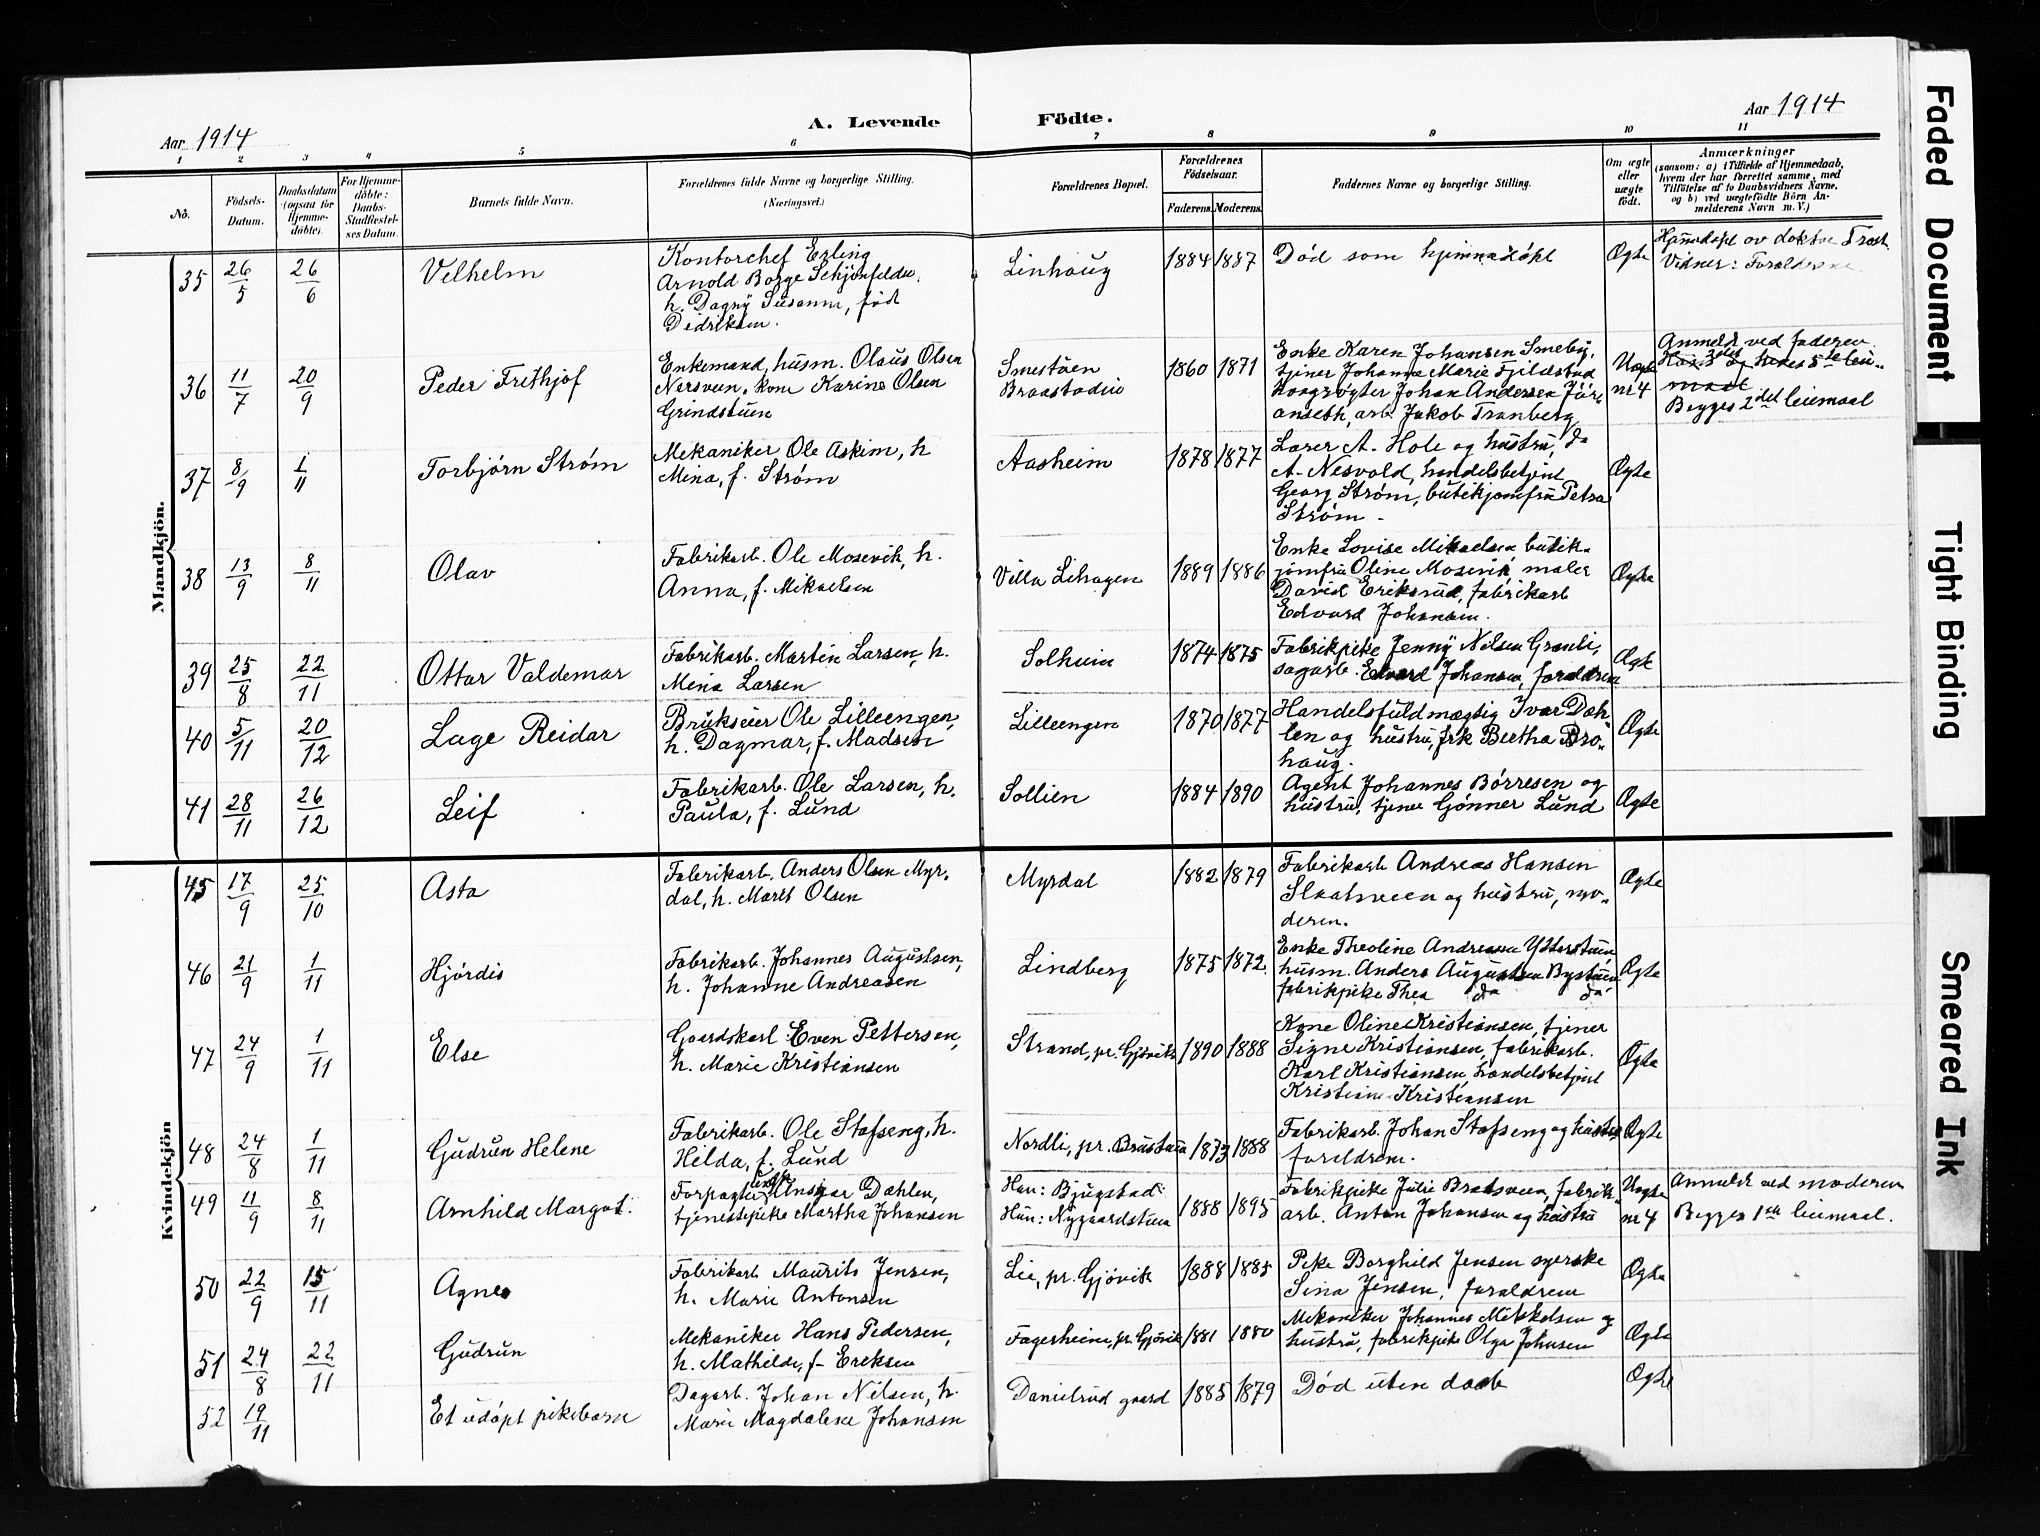 Aar 1914
A. Levende Födte.
Aar 1914
1 2 3 4 5 6 7 8 9 10 11
No.
Födsels-
Datum.
Daabsdatum
(ogsaa for
Hjemme-
döbte).
For Hjemme-
döbte:
Daabs-
Stadfæstel-
ses Datum.
Barnets fulde Navn.
Forældrenes fulde Navne og borgerlige Stilling.
(Næringsvei.)
Forældrenes Bopæl.
Forældrenes
Födselsaar.
Faderens. Moderens.
Faddernes Navne og borgerlige Stilling.
Om ægte
eller
uægte
födt.
Anmærkninger
(saasom: a) i Tilfælde af Hjemmedaab,
hvem der har forrettet samme, med
Tilföielse af to Daabsvidners Navne,
og b) ved uægtefödte Börn An-
melderens Navn m. V.)
Mandkjön.
35 26/5 26/6 Velhelm
Kontorchef Erling
Arnold Borge Schjønfelder,
h. Dagny Susanne, født
Didriksen.
Linhaug 1884 1887 Død som hjemmedøpt Ægte
Hjemdøpt av doktor Trast
Vidner: Forældrene
36 11/7 20/9 Peder Frithjof
Enkemand, husm. Olaus Olsen
Nersveen, kone Karine Olsen
Grindstuen
Smestuen
Braastadlie
1860 1871
Enke Karen Johansen Smeby,
tjener Johanne Marie Fjildstad
Johan Andersen
arb. Jakob Tranberg
Uægte
nr 4
Anmeldt ved faderen
Begges 2det leiemaal
37 8/9 1/11 Torbjørn Strøm
Mekaniker Ole Askim, h
Mina, f. Strøm
Aasheim 1878 1877
Lærer A. Hole og hustru, do
A. Nesvold, handelsbetjent
Georg Strøm, butikjomfru Petra
Strøm -
Ægte
38 13/9 8/11 Olav
Fabrikarb. Ole Mosevik, h.
Anna, f. Mikaelsen
Villa Lihagen 1889 1886
Enke Lovise Mikaelsen butik-
jomfru Oline Mosevik maler
David Eriksrud, fabrikarb
Edvard Johansen.
Ægte
39 25/8 22/11 Ottar Valdemar
Fabrikarb. Martin Larsen, h.
Mina Larsen
Solheim 1874 1875
Fabrikpike Jenny Nilsen Granli,
sagarb. Edvard Johansen, forældrene
Ægte
40 5/11 20/12 Lage Reidar
Brukseier Ole Lilleengen,
h. Dagmar, f. Madsen
Lilleengen 1870 1877
Handelsfuldmægtig Ivar Dæh-
len og hustru, frk Bertha Bro-
haug.
Ægte
41 28/11 26/12 Leif
Fabrikarb. Ole Larsen, h.
Paula, f. Lund
Sollien 1884 1890
Agent Johannes Børresen og
hustru, tjener Gønner Lund
Ægte
Kvindekjön
45 17/9 25/10 Asta
Fabrikarb. Anders Olsen Myr-
dal, h. Marit Olsen
Myrdal 1882 1879
Fabrikarb Andreas Hansen
Slaatsveen og hustru, mo-
deren.
Ægte
46 21/9 1/11 Hjørdis
Fabrikarb. Johannes Augustsen,
h. Johanne Andreasen
Lindberg 1875 1872
Enke Theoline Andreasen Ytterstuen,
husm. Anders Augustsen Bystuen
fabrikpike Thea do do
Ægte
47 24/9 1/11 Else
Gaardskarl Even Pettersen,
h. Marie Kristiansen
Strand, pr. Gjøvik 1890 1888
Kone Oline Kristiansen, tjener
Signe Kristiansen, fabrikarb.
Karl Kristiansen, handelsbetjent
Kristiane Kristiansen
Ægte
48 24/8 1/11 Gudrun Helene
Fabrikarb. Ole Stafseng, h.
Hilda, f. Lund
Nordli, pr. Brustuen 1873 1888
Fabrikarb. Johan Stafseng og hustru
forældrene.
Ægte
49 11/9 8/11 Arnhild Margot.
Forpagter ungk. Ansgar Dæhlen,
tjenestepike Martha Johansen
Han: Bjugstad
Hun: Nygaardstuen
1888 1895
Fabrikpike Julie Bratsveen, fabrik-
arb. Anton Johansen og hustru
Uægte
nr 4
Anmeldt ved moderen
Begges 1ste leiemaal.
50 22/9 15/11 Agnes
Fabrikarb Maurits Jensen,
h. Marie Antonsen
Lie, pr. Gjøvik 1888 1885
Pike Borghild Jensen syerske
Sina Jensen, forældrene
Ægte
51 24/8 22/11 Gudrun
Mekaniker Hans Pedersen,
h. Mathilde, f- Eriksen
Fagerheim, pr. Gjøvik 1881 1880
Mekaniker Johannes Mikkelsen og
hustru, fabrikpike Olga Johnsen
Ægte
52 19/11 Et udøpt pikebarn
Dagarb. Johan Nilsen, h.
Marie Magdalene Johansen
Danielsrud gaard 1885 1879 Død uten daab
Ægte
Faded Document
Tight Binding
Smeared Ink